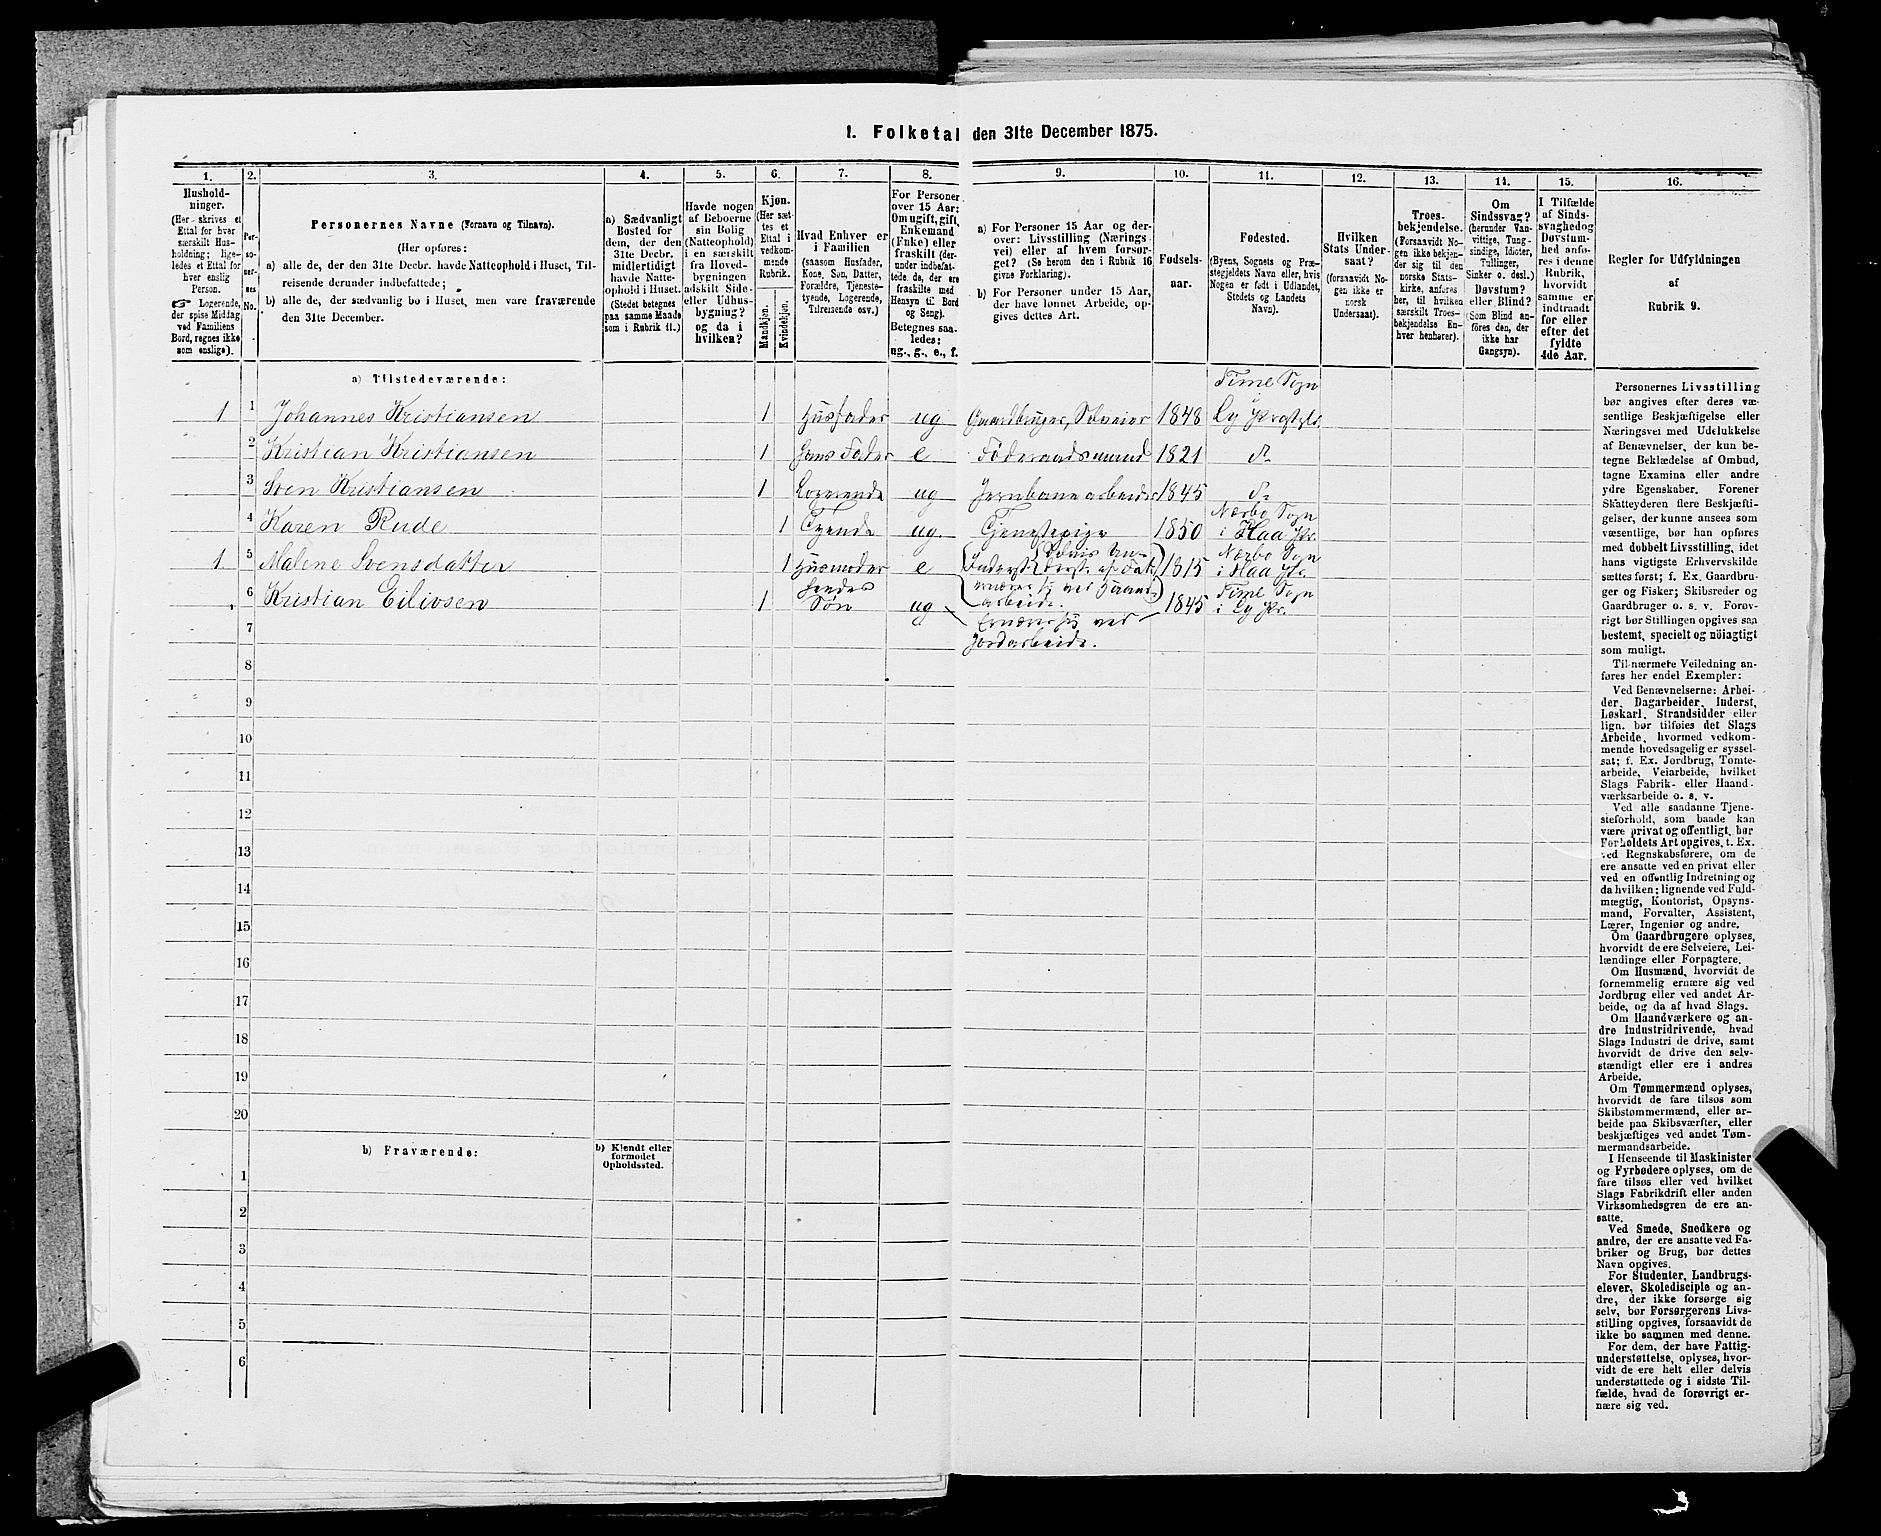 1. Folketal den 31te December 1875.
1. 2. 3. 4. 5. 6. 7. 8. 9. 10. 11. 12. 13. 14. 15. 16.
Hushold-
ninger.
(Her skrives et
Ettal for hver
særskilt Hus-
holdning; lige-
ledes et Ettal for
hver enslig
Person.
☞ Logerende,
der spise Middag
ved Familiens
Bord, regnes ikke
som enslige).
Per-
so-
ner-
nes
No.
Personernes Navne (Fornavn og Tilnavn).
(Her opføres:
a) alle de, der den 31te Decbr. havde Natteophold i Huset, Til-
reisende derunder indbefattede;
b) alle de, der sædvanlig bo i Huset, men vare fraværende
den 31te December.
a) Sædvanligt
Bosted for
dem, der den
31te Decbr.
midlertidigt
havde Natte-
ophold i Huset.
(Stedet betegnes
paa samme Maade
som i Rubrik 11.)
Havde nogen
af Beboerne
sin Bolig
(Natteophold)
i en særskilt
fra Hoved-
bygningen
adskilt Side-
eller Udhus-
bygning?
og da i
hvilken?
Kjøn.
(Her sæt-
tes et
Ettal i
vedkom-
mende
Rubrik.
Mandkjøn.
Kvindekjøn.
Hvad Enhver er
i Familien
(saasom Husfader,
Kone, Søn, Datter,
Forældre, Tjeneste-
tyende, Logerende,
Tilreisende osv.)
For Personer
over 15 Aar:
Om ugift, gift,
Enkemand
(Enke) eller
fraskilt (der-
under indbefat-
tede de, der ere
fraskilte med
Hensyn til Bord
og Seng).
Betegnes saa-
ledes:
ug., g., e., f.
a) For Personer 15 Aar og der-
over: Livsstilling (Nærings-
vei) eller af hvem forsør-
get? (Se herom den i Rubrik 16
givne Forklaring).
b) For Personer under 15 Aar,
der have lønnet Arbeide, op-
gives dettes Art.
Fødsels-
aar.
Fødested.
(Byens, Sognets og Præ-
stegjeldets Navn eller, hvis
Nogen er født i Udlandet,
Stedets og Landets
Navn).
Hvilken
Stats Under-
saat?
(forsaavidt No-
gen ikke er
norsk
Undersaat).
Troes-
bekjendelse.
(Forsaavidt No-
gen ikke bekjen-
der sig til den
norske Stats-
kirke, anføres
her, til hvilken
særskilt Troes-
bekjendelse En-
hver henhører).
Om
Sindssvag?
(herunder Van-
vittige, Tung-
sindige, Idioter,
Tullinger,
Sinker o. desl.)
Døvstum?
eller Blind?
(Som Blind an-
føres den, der
ikke har
Gangsyn).
I Tilfælde
af Sinds-
svaghed og
Døvstum-
hed anfø-
res i denne
Rubrik,
hvorvidt
samme er
indtraadt
før eller
efter det
fyldte
4de Aar.
Regler for Udfyldningen
af
Rubrik 9.
a) Tilstedeværende:
Time Sogn
1 1 Johannes Kristiansen 1 Husfader ug Gaardbruger, Selveier 1848 Ly Prstgld.
2 Kristian Kristiansen 1 Hans Fader e Föderaadsmand 1821 do
3 Sven Kristiansen 1 Logerende ug Jernbanearbeider 1845 do
Nærbo Sogn
4 Karen Rude 1 Tyende ug. Tjenestepige 1850 i Haa Pr.
Nærbo Sogn
1 5 Malene Svensdatter 1 Husmoder e Inderst 1815 i Haa Pr.
arbeide.
Hendes Time Sogn
6 Kristian Eilivsen 1 Søn ug 1845 i Ly Pr.
7 Ernærer sig ved
Jordarbeide.
8
9
10
11
12
13
14
15
16
17
18
19
20
b) Fraværende:
b) Kjendt eller
formodet
Opholdssted.
1
2
3
4
5
6
Personernes Livsstilling
bør angives efter deres væ-
sentlige Beskjæftigelse eller
Næringsvei med Udelukkelse
af Benævnelser, der kun be-
tegne Beklædelse af Ombud,
tagne Examina eller andre
ydre Egenskaber. Forener
Skatteyderen flere Beskjæfti-
gelser, der kunne ansees som
væsentlige, bør han opføres
med dobbelt Livsstilling, idet
hans vigtigste Erhvervskilde
sættes først; f. Ex. Gaardbru-
ger og Fisker; Skibsreder og
Gaardbruger o. s. v. Forøv-
rigt bør Stillingen opgives saa
bestemt, specielt og nöiagtigt
som muligt.
Til nærmere Veiledning an-
føres her endel Exempler:
Ved Benævnelserne: Arbei-
der, Dagarbeider, Inderst,
Løskarl, Strandsidder eller
lign. bør tilføies det Slags
Arbeide, hvormed vedkom-
mende hovedsagelig er syssel-
sat; f. Ex. Jordbrug, Tomte-
arbeide, Veiarbeide, hvilket
Slags Fabrik- eller Haand-
værksarbeide o. s. v.
Ved alle saadanne Tjene-
steforhold, som baade kan
være privat og offentligt, bør
Forholdets Art opgives, t. Ex.
ved Regnskabsførere, om de
ere ansatte ved en privat eller
ved en offentlig Indretning og
da hvilken; lignende ved Fuld-
mægtig, Kontorist, Opsyns-
mand, Forvalter, Assistent,
Lærer, Ingeniør og andre.
Om Gaardbrugere oplyses,
hvorvidt de ere Selveiere, Lei-
lændinge eller Forpagtere.
Om Husmænd, hvorvidt de
fornemmelig ernære sig ved
Jordbrug eller ved andet Ar-
beide, og da af hvad Slags.
Om Haandværkere og an-
dre Industridrivende, hvad
Slags Industri de drive, samt
hvorvidt de drive den selv-
stændigt eller ere i andres
Arbeide.
Om Tømmermænd oplyses,
hvorvidt de fare tilsøs som
Skibstømmermænd, eller ar-
beide paa Skibsværfter, eller
beskjæftiges ved andet Tøm-
mermandsarbeide.
I Henseende til Maskinister
og Fyrbødere oplyses, om de
fare tilsøs eller ved hvilket
Slags Fabrikdrift eller anden
Virksomhedsgren de ere an-
satte.
Ved Smede, Snedkere og
andre, der ere ansatte ved Fa-
briker og Brug, bør dettes
Navn opgives.
For Studenter, Landbrugs-
elever, Skoledisciple og an-
dre, der ikke forsørge sig
selv, bør Forsørgerens Livs-
stilling opgives, forsaavidt de
ikke bo sammen med denne.
For dem, der have Fattig-
understøttelse, oplyses, hvor-
vidt de ere helt eller delvis
understøttede og i sidste Til-
fælde, hvad de forøvrigt er-
nære sig ved.